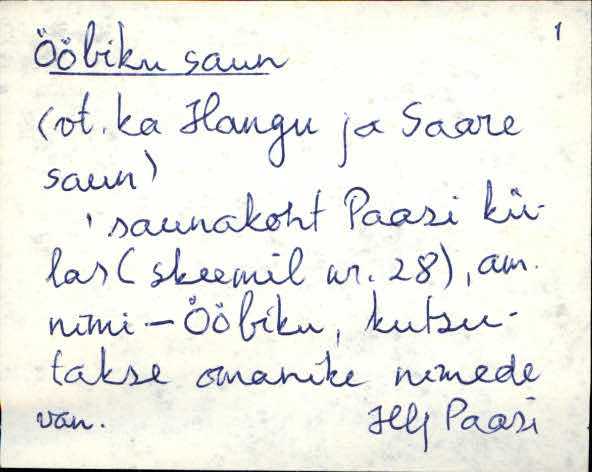 1
Ööbiku saun
(vt. ka Hangu ja Saare
saun)
saunakoht Paasi kü-
las (skeemil nr. 28), am.
nimi – Ööbiku, kutsu-
takse omanike nimede
Paasi